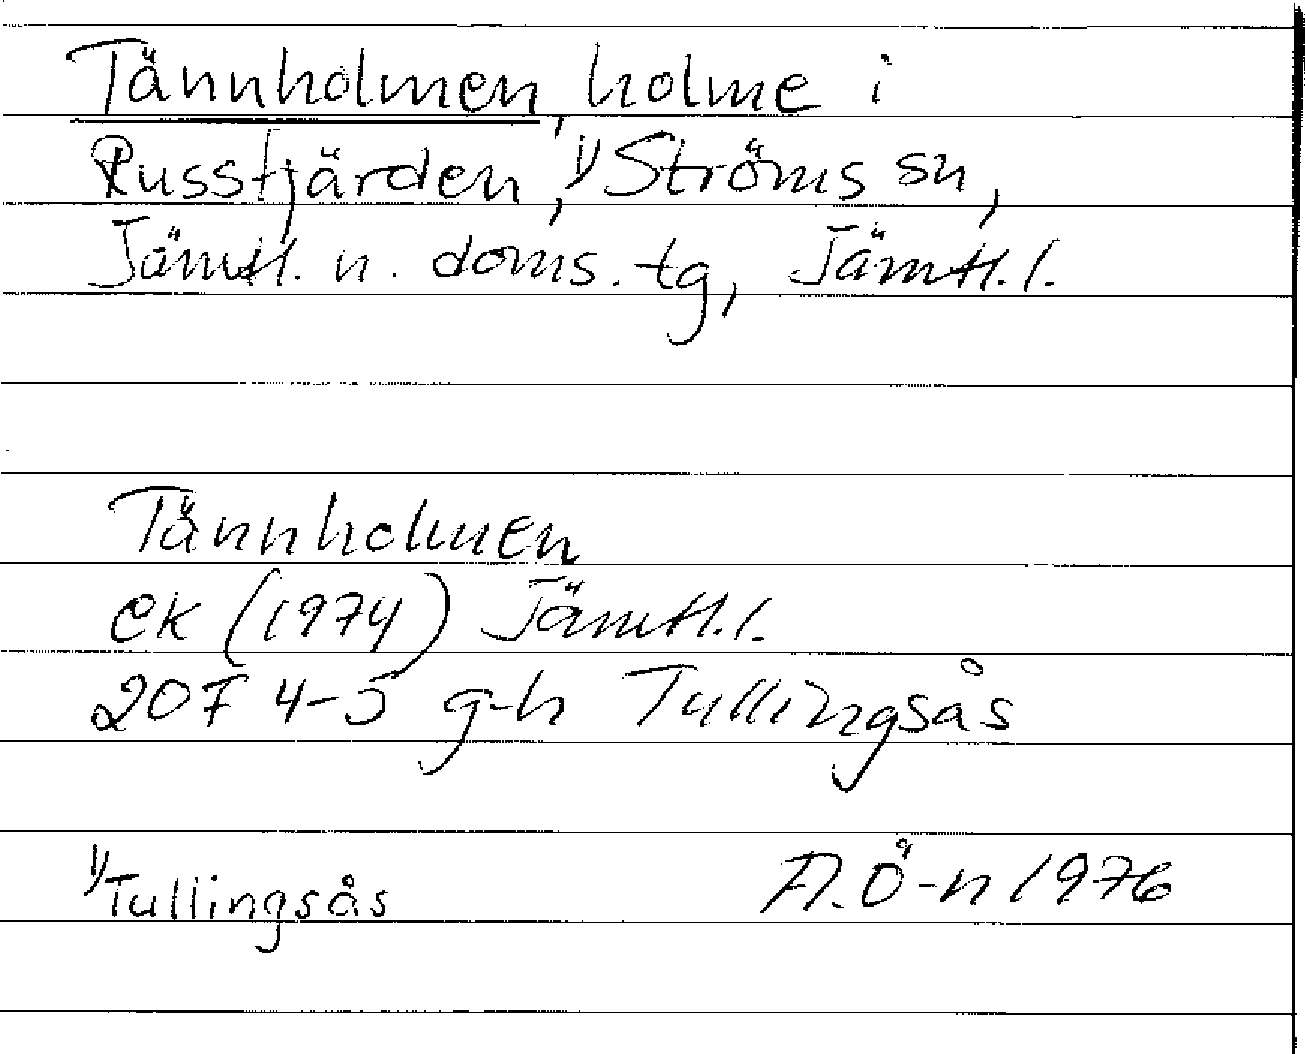 Tännholmen, holme i
Russfjärden, 1) Ströms sn,
Jämtl. n. doms. tg, Jämtl. l.
Tännholmen
ek (1974) Jämtl. l.
20F 4-5 g-h Tullingsås
1) Tullingsås
A. Ö-n 1976